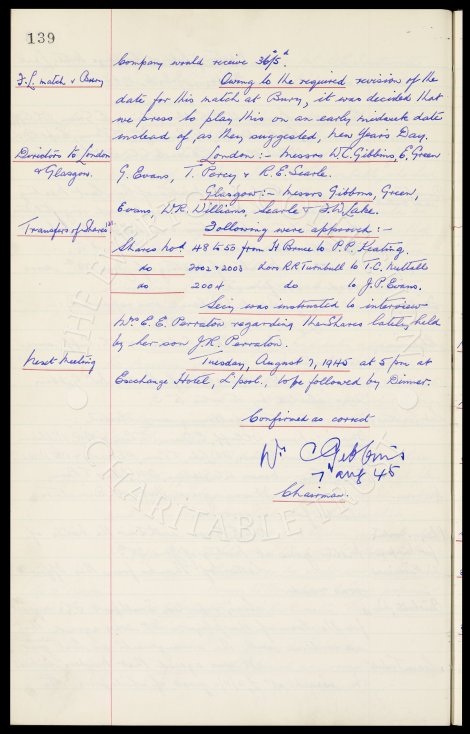 139
Company would receive 36/5d.
F.L. match v Bury
Owing to the required revision of the
date for this match at Bury, it was decided that
we press to play this on an early midweek date
instead of, as they suggested, New Year's Day.
Directors to London
& Glasgow.
London:- Messrs W.C. Gibbins, E. Green
G. Evans, T. Percy & R.E. Searle.
Glasgow:- Messrs Gibbins, Green,
Evans, W.R. Williams, Searle & F.W. Lake.
Transfers of Shares
Following were approved:-
Shares Nos 48 to 50 from H Bruce to P.P. Keating.
do 2002 & 2003 Exors R R Turnbull to T.C. Nuttall
do 2004 do to J.P. Evans.
Secy. was instructed to interview
Mrs E.E. Perraton regarding the Shares lately held
by her son J.R. Perraton.
Next Meeting
Tuesday, August 7, 1945 at 5 pm at
Exchange Hotel, L'pool., to be followed by Dinner.
Confirmed as correct
Wm C Gibbins
7 Aug 45
Chairman.
CHARITABLE